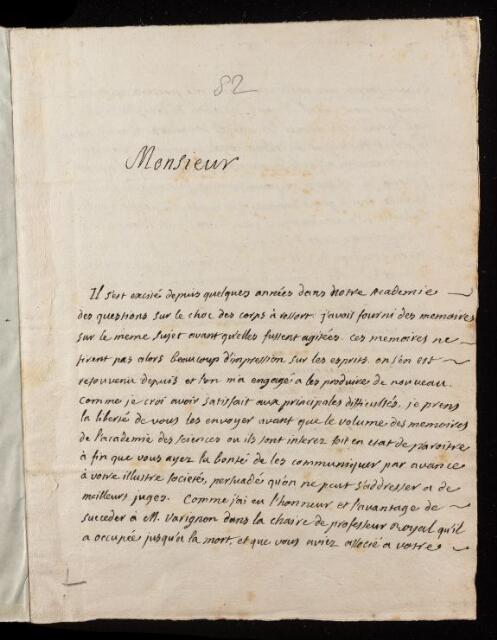 82
Monsieur
Il s'est excité depuis quelques années dans notre Academie
des questions sur le choc des corps à ressort. j'avoir fourni des memoires
sur le meme sujet avant qu'elles fussent agitées. ces memoires ne
firent pas alors beaucoup d'impression sur les esprits. on s'en est
resouvenu depuis et l'on m'a engagé a les produire de nouveau.
Comme je croi avoir satisfait aux principales difficultés, je prens
la liberté de vous les envoyer avant que le volume des memoires
de l'academie des sciences ou ils sont inserez soit en etat de paroitre
à fin que vous ayez la bonté de les communiquer par avance
à votre illustre societé, persuadé qu'on ne peut s'addresser a de
meilleurs juges. Comme j'ai eu l'honneur et l'avantage de
succeder à M. Varignon dans la chaire de professeur Royal qu'il
a occupée jusqu'a la mort, et que vous aviez associé a votre